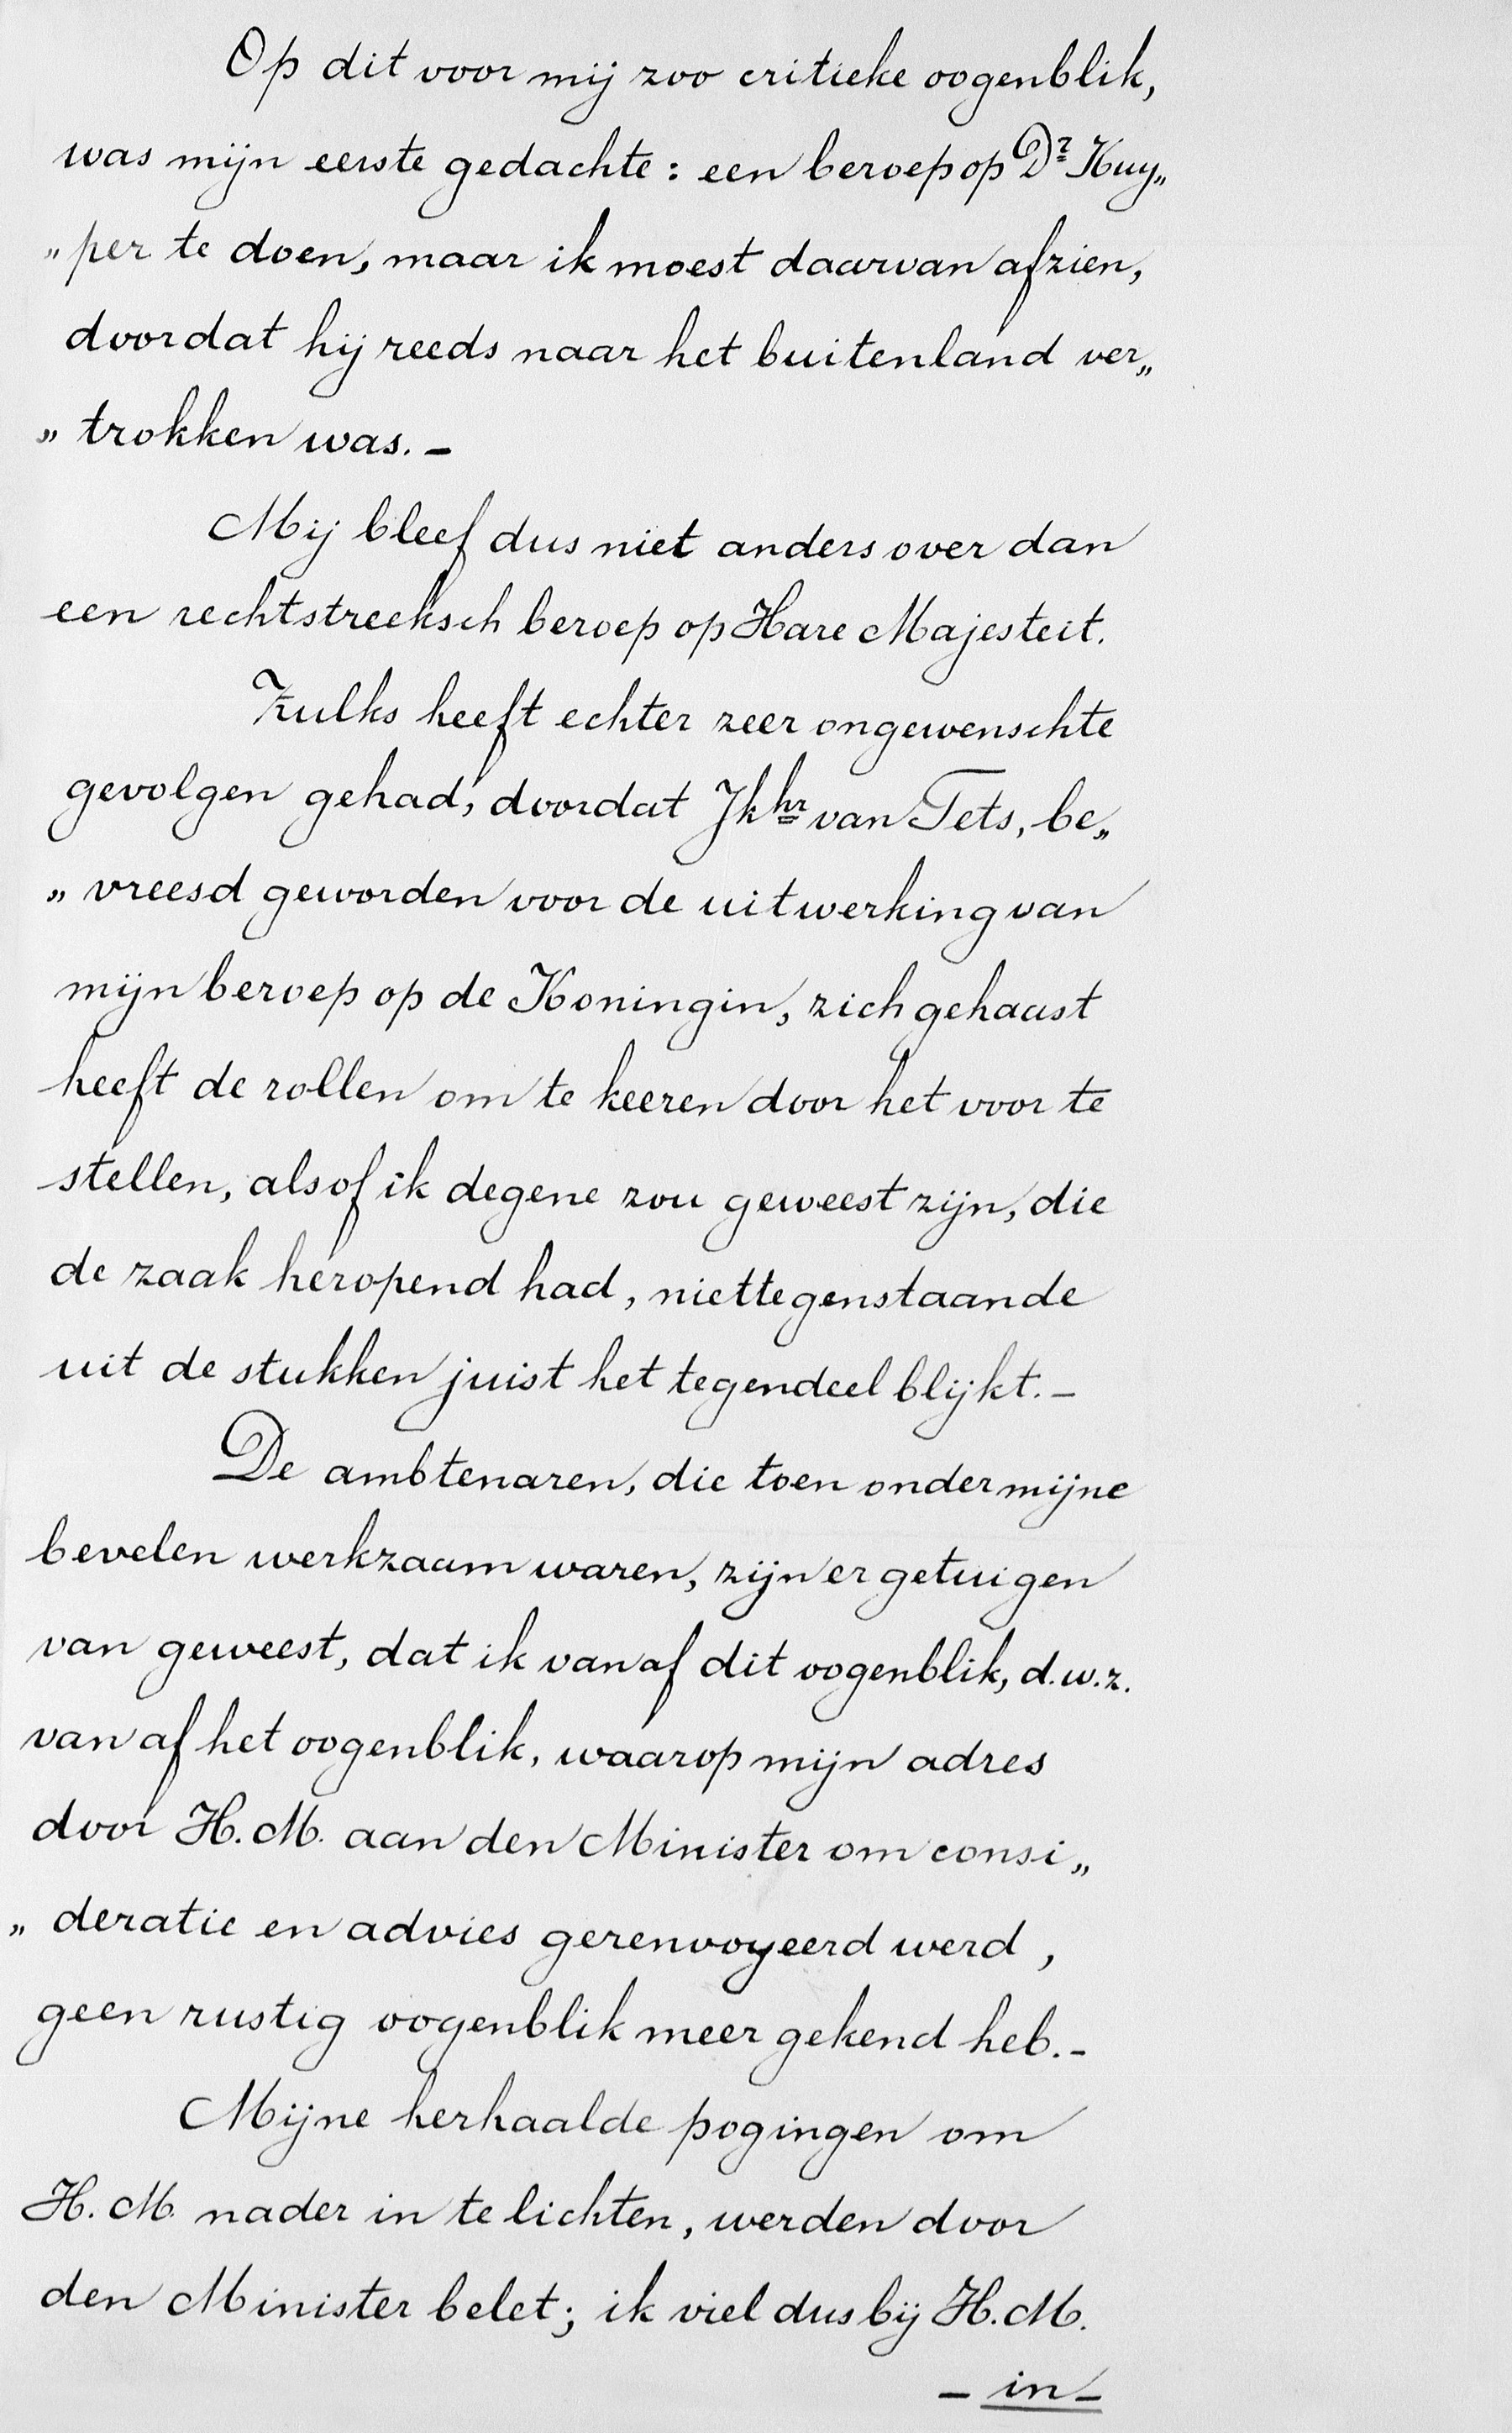 Op dit voor mij zoo critieke oogenblik,
was mijn eerste gedachte: een beroep op Dr Kuy„
„per te doen, maar ik moest daarvan afzien,
doordat hij reeds naar het buitenland ver„
„trokken was. –
Mij bleef dus niet anders over dan
een rechtstreeksch beroep op Hare Majesteit.
Zulks heeft echter zeer ongewenschte
gevolgen gehad, doordat Jkhr van Tets, be„
„vreesd geworden voor de uitwerking van
mijn beroep op de Koningin, zich gehaast
heeft de rollen om te keeren door het voor te
stellen, alsof ik degene zou geweest zijn, die
de zaak heropend had, niettegenstaande
uit de stukken juist het tegendeel blijkt. –
De ambtenaren, die toen onder mijne
bevelen werkzaam waren, zijn er getuigen
van geweest, dat ik vanaf dit oogenblik, d.w.z.
vanaf het oogenblik, waarop mijn adres
door H.M. aan den Minister om consi„
„deratie en advies gerenvoyeerd werd,
geen rustig oogenblik meer gekend heb. –
Mijne herhaalde pogingen om
H.M. nader in te lichten, werden door
den Minister belet; ik viel dus bij H.M.
– in –